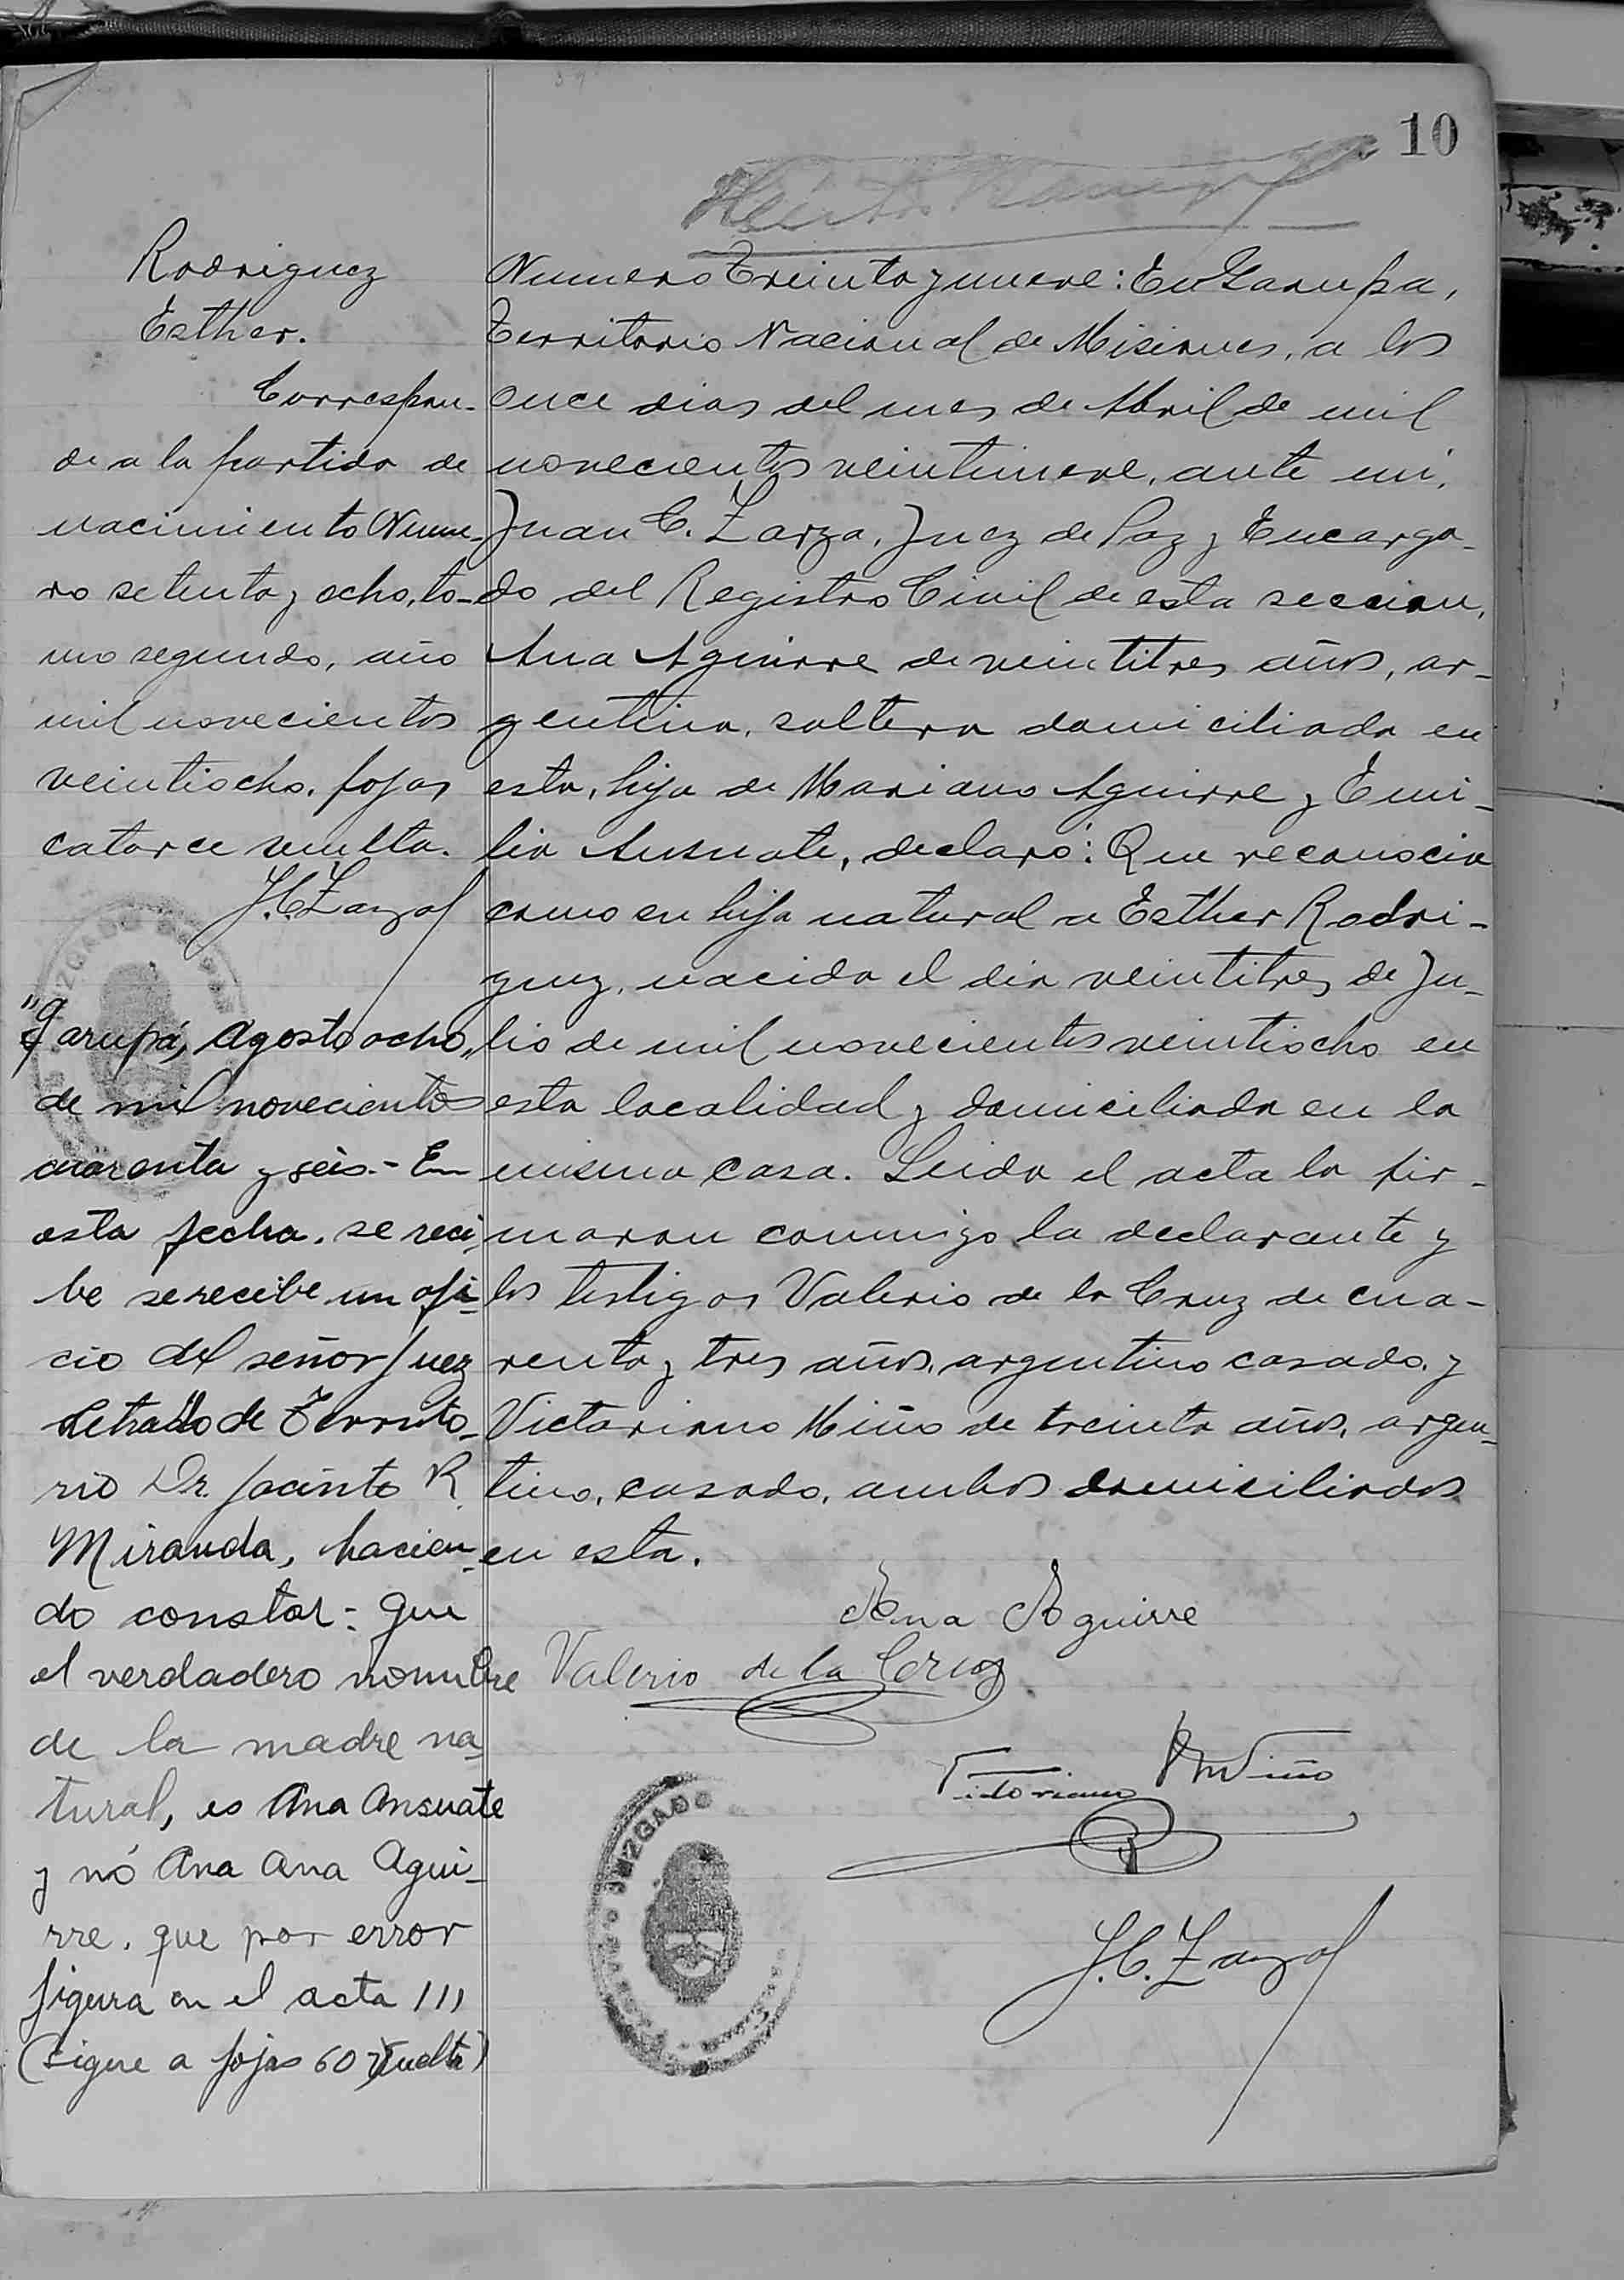 10
Rodriguez
Esther.
Correspon-
de a la partida de
nacimiento Nume-
ro setenta y ocho, to-
mo segundo, año
mil novecientos
veintiocho, fojas
catorce vuelta.
J.C. Zarza
"Garupá, Agosto ocho,,
de mil novecientos
cuarenta y seis.- En
esta fecha, se reci-
be se recibe un ofi-
cio del señor Juez
Letrado de Territo-
rio Dr. Jacinto R.
Miranda, hacien-
do constar: que
el verdadero nombre
de la madre na-
tural, es Ana Ansuate
y nó Ana Ana Agui-
rre, que por error
figura en el acta
(sigue a fojas 60 vuelta)
Numero Treinta y nueve: En Garupa,
Territorio Nacional de Misiones, a los
once dias del mes de Abril de mil
novecientos veintinueve, ante mi,
Juan C. Zarza, Juez de Paz y Encarga-
do del Registro Civil de esta seccion,
Ana Aguirre de veintitres años, ar-
gentina, soltera domiciliada en
esta, hija de Mariano Aguirre y Emi-
lia Ansuate, declaró: Que reconocia
como su hija natural a Esther Rodri-
guez, nacida el dia veintitres de Ju-
lio de mil novecientos veintiocho en
esta localidad y domiciliada en la
misma casa. Leida el acta la fir-
maron conmigo la declarante y
los testigos Valerio de la Cruz de cua-
renta y tres años, argentino casado, y
Victoriano Miño de treinta años, argen-
tino, casado, ambos domiciliados
en esta.
Ana Aguirre
Valerio de la Cruz
Vitoriano Miño
J.C. Zarza
JUZGADO